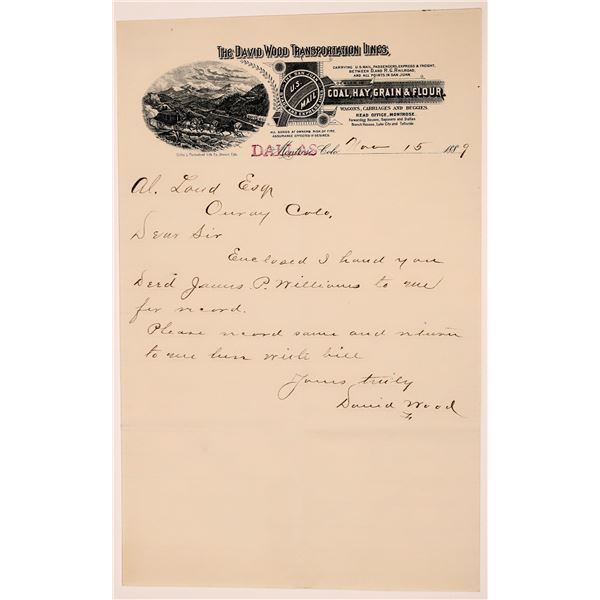 THE DAVID WOOD TRANSPORTATION LINES,
CARRYING U.S. MAIL, PASSENGERS, EXPRESS & FREIGHT,
BETWEEN D. AND R. G. RAILROAD,
AND ALL POINTS IN SAN JUAN.
U.S. MAIL
COAL, HAY, GRAIN & FLOUR
WAGONS, CARRIAGES AND BUGGIES.
HEAD OFFICE, MONTROSE.
Forwarding Houses, Sapinero and Dallas
Branch Houses, Lake City and Telluride
ALL GOODS AT OWNERS RISK OF FIRE.
ASSURANCE EFFECTED IF DESIRED.
DALLAS Montrose, Colo. Nov 15 1889
Al. Loud Esqr
Ouray Colo,
Dear Sir
Enclosed I hand you
Deed James P. Williams to me
for record.
Please record same and return
to me here with bill
Yours truly
David Wood